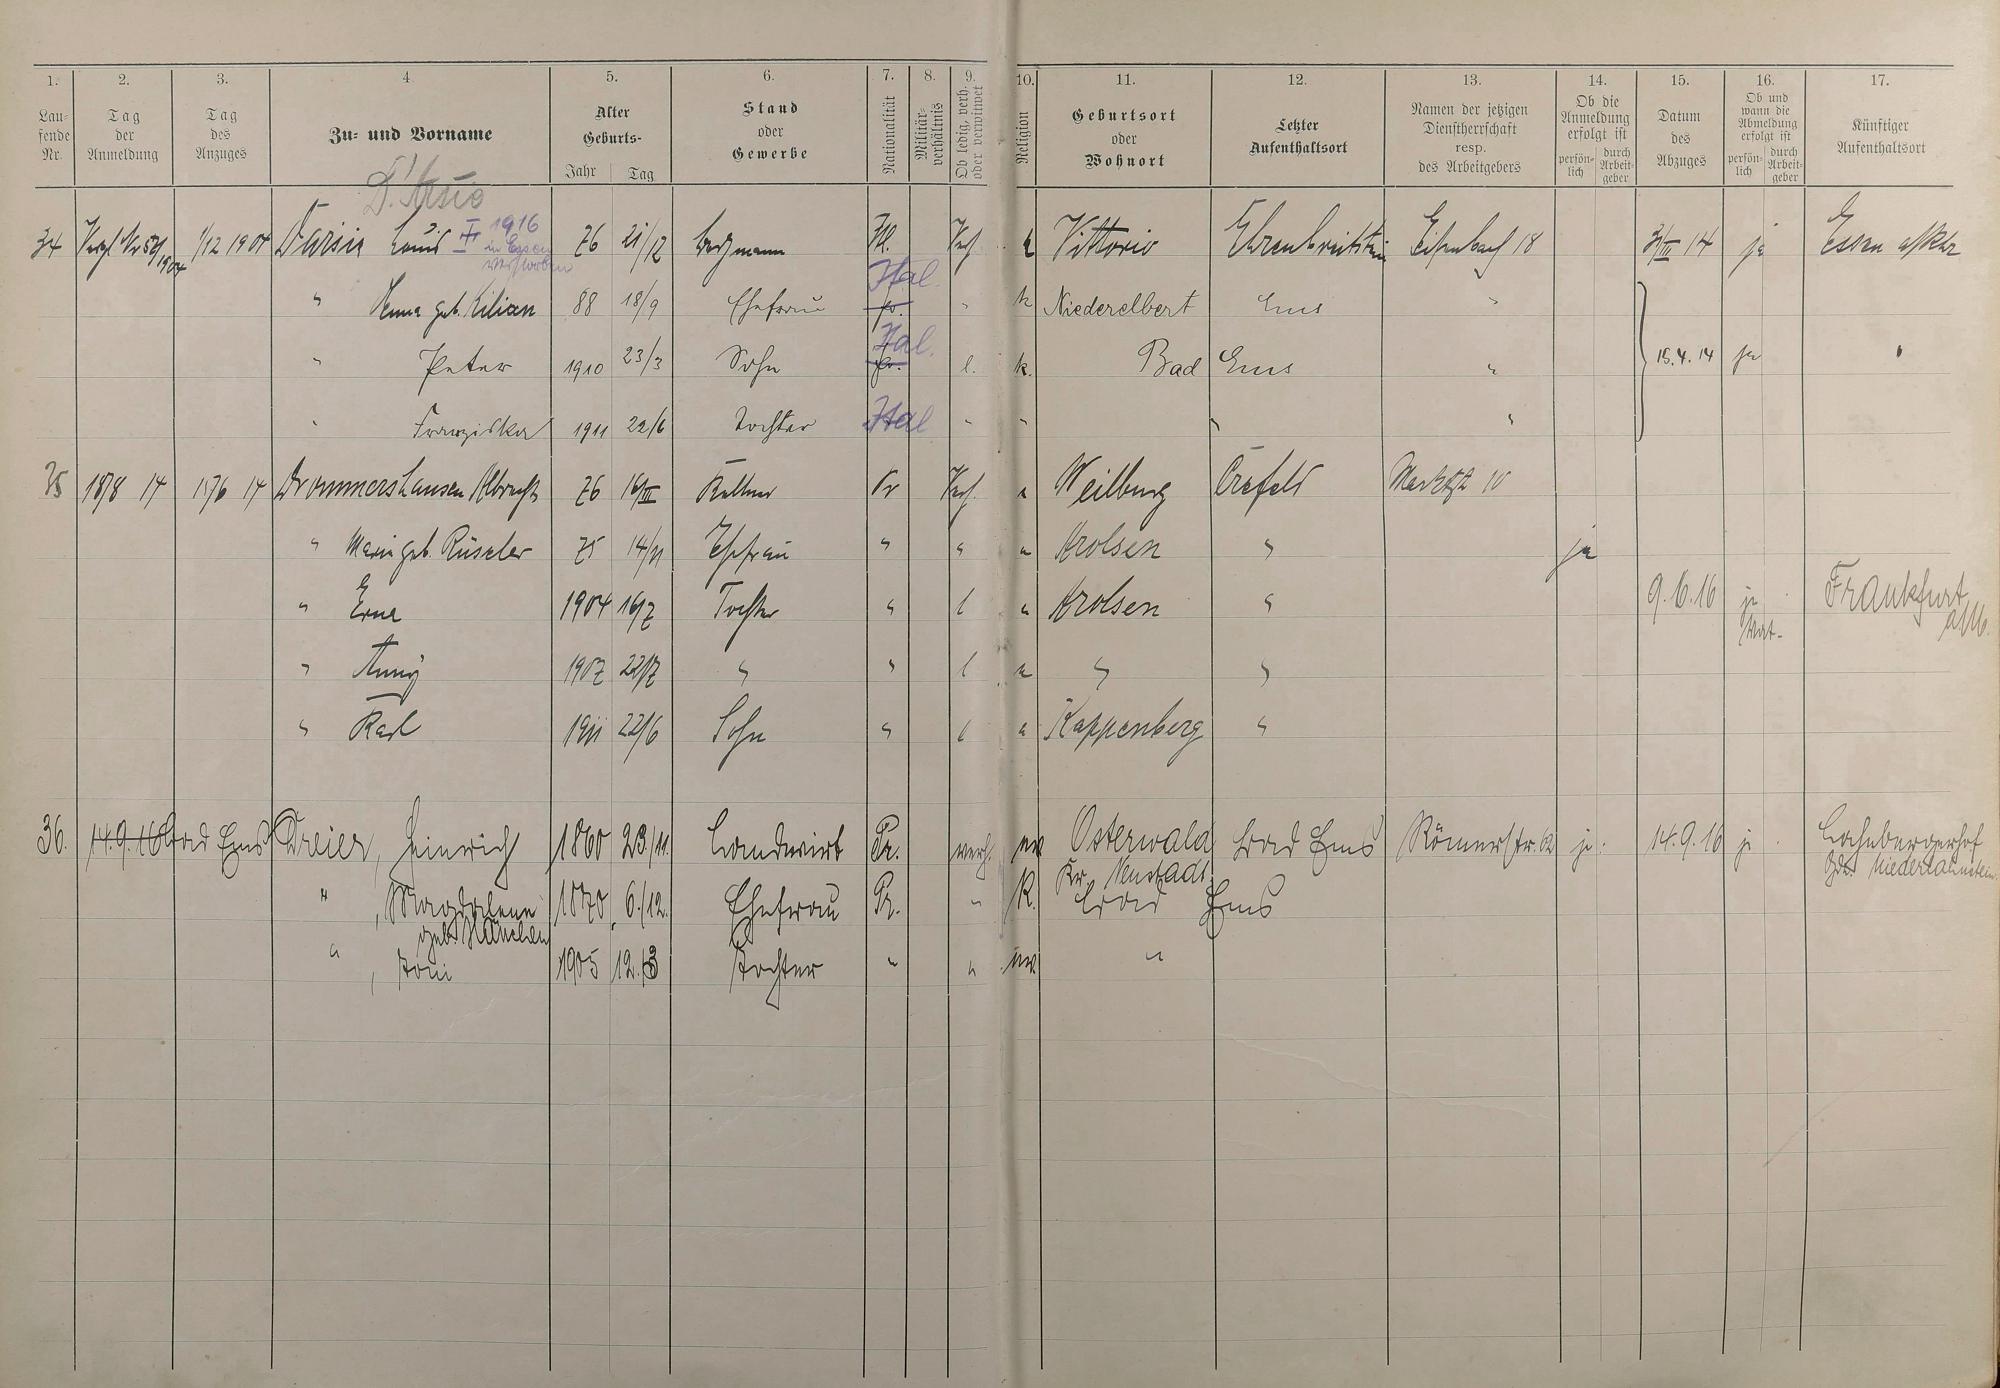 1. 2. 3. 4 5. 6. 7. 8. 9. 10. 11. 12. 13. 14. 15. 16. 17.
Lau-
fende
Nr.
Tag
der
Anmeldung
Tag
des
Anzuges
Zu- und Vorname
Alter
Geburts-
Jahr Tag
Stand
oder
Gewerbe
Nationalität
Militär-
verhältnis
Ob ledig, verh.
oder verwitwet
Religion
Geburtsort
oder
Wohnort
Letzter
Aufenthaltsort
Namen der jetzigen
Dienstherrschaft
resp.
des Arbeitgebers
Ob die
Anmeldung
erfolgt ist
persön-
lich
durch
Arbeit-
geber
Datum
des
Abzuges
Ob und
wann die
Abmeldung
erfolgt ist
persön-
lich
durch
Arbeit-
geber
Künftiger
Aufenthaltsort
34 1/12 1904 Darsie Louis 76 21/12 Bergmann Verh. k Vittorio Ehrenbreitstein 18 31/III 14 ja Essen a/Ruhr
1916
in Essen
verstorben
" geb. Kilian 88 18/9 Ehefrau Ital. " k Niederelbert Ems "
" Peter 1910 23/3 Sohn Ital. l. k. Bad Ems " 15.4.14 ja "
" Franziska 1911 22/6 Tochter Ital " " " "
35 18/8 14 15/6 14 Drommershausen Albrecht 76 16/III Kellner Pr Verh. Weilburg Crefeld Marktstr 10
" Marie geb. Rüseler 75 14/11 Ehefrau " " " Arolsen " ja
" Erna 1904 16/7 Tochter " l " Arolsen " 9.6.16 ja Frankfurt
a/M.
" Anny 1907 22/7 " " l " " "
" Karl 1911 22/6 Sohn " l " Kappenberg "
36. 14.9.16 Bad Ems Dreier, Heinrich 1860 23./11. Landwirt Pr. verh. ev. Osterwald Bad Ems Römerstr. 62 ja. 14.9.16 ja Lahnbergerhof
Kr. Neustadt Niederlahnstein.
" , Magdalene 1870 6./12. Ehefrau Pr. " K. Bad Ems
geb.
" , Toni 1905 12./3 Tochter " " ev. "